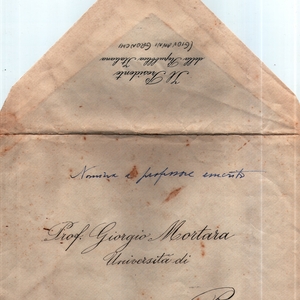 Il Presidente
della Repubblica Italiana
(GIOVANNI GRONCHI)
Nomina a professore emerito
Prof. Giorgio Mortara
Università di